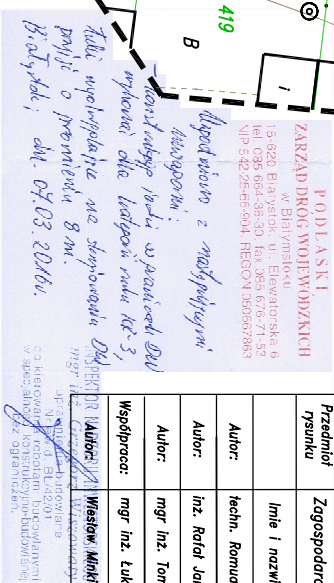 419
B
i
PODLASKI
ZARZĄD DRÓG WOJEWÓDZKICH
w Białymstoku
15-620 Białystok, ul. Elewatorska 6
tel. 085 664-36-30, fax 085 676-71-53
NIP 542-25-66-904, REGON 050667863
Uzgodniono z następującymi
uwagami:
- konstrukcję jezdni w pasie drogi DW
wykonać dla kategorii ruchu KR-3,
- łuki wyokrąglające na skrzyżowaniu DW
przyjąć o promieniu 8 m.
Białystok, dn. 07.03.2016r.
INSPEKTOR
mgr inż. Grzegorz
uprawnienia budowlane
Nr ewid. BŁ/42/01
do kierowania robotami budowlanymi
w specjalności konstrukcyjno-budowlanej
bez ograniczeń
Przedmiot
rysunku
Zagospodar
Imię i nazwi
Autor:
techn. Romu
Autor:
inż. Rafał Jar
Autor:
mgr inż. Tom
Współpraca:
mgr inż. Łuk
Autor:
Wiesław Minki